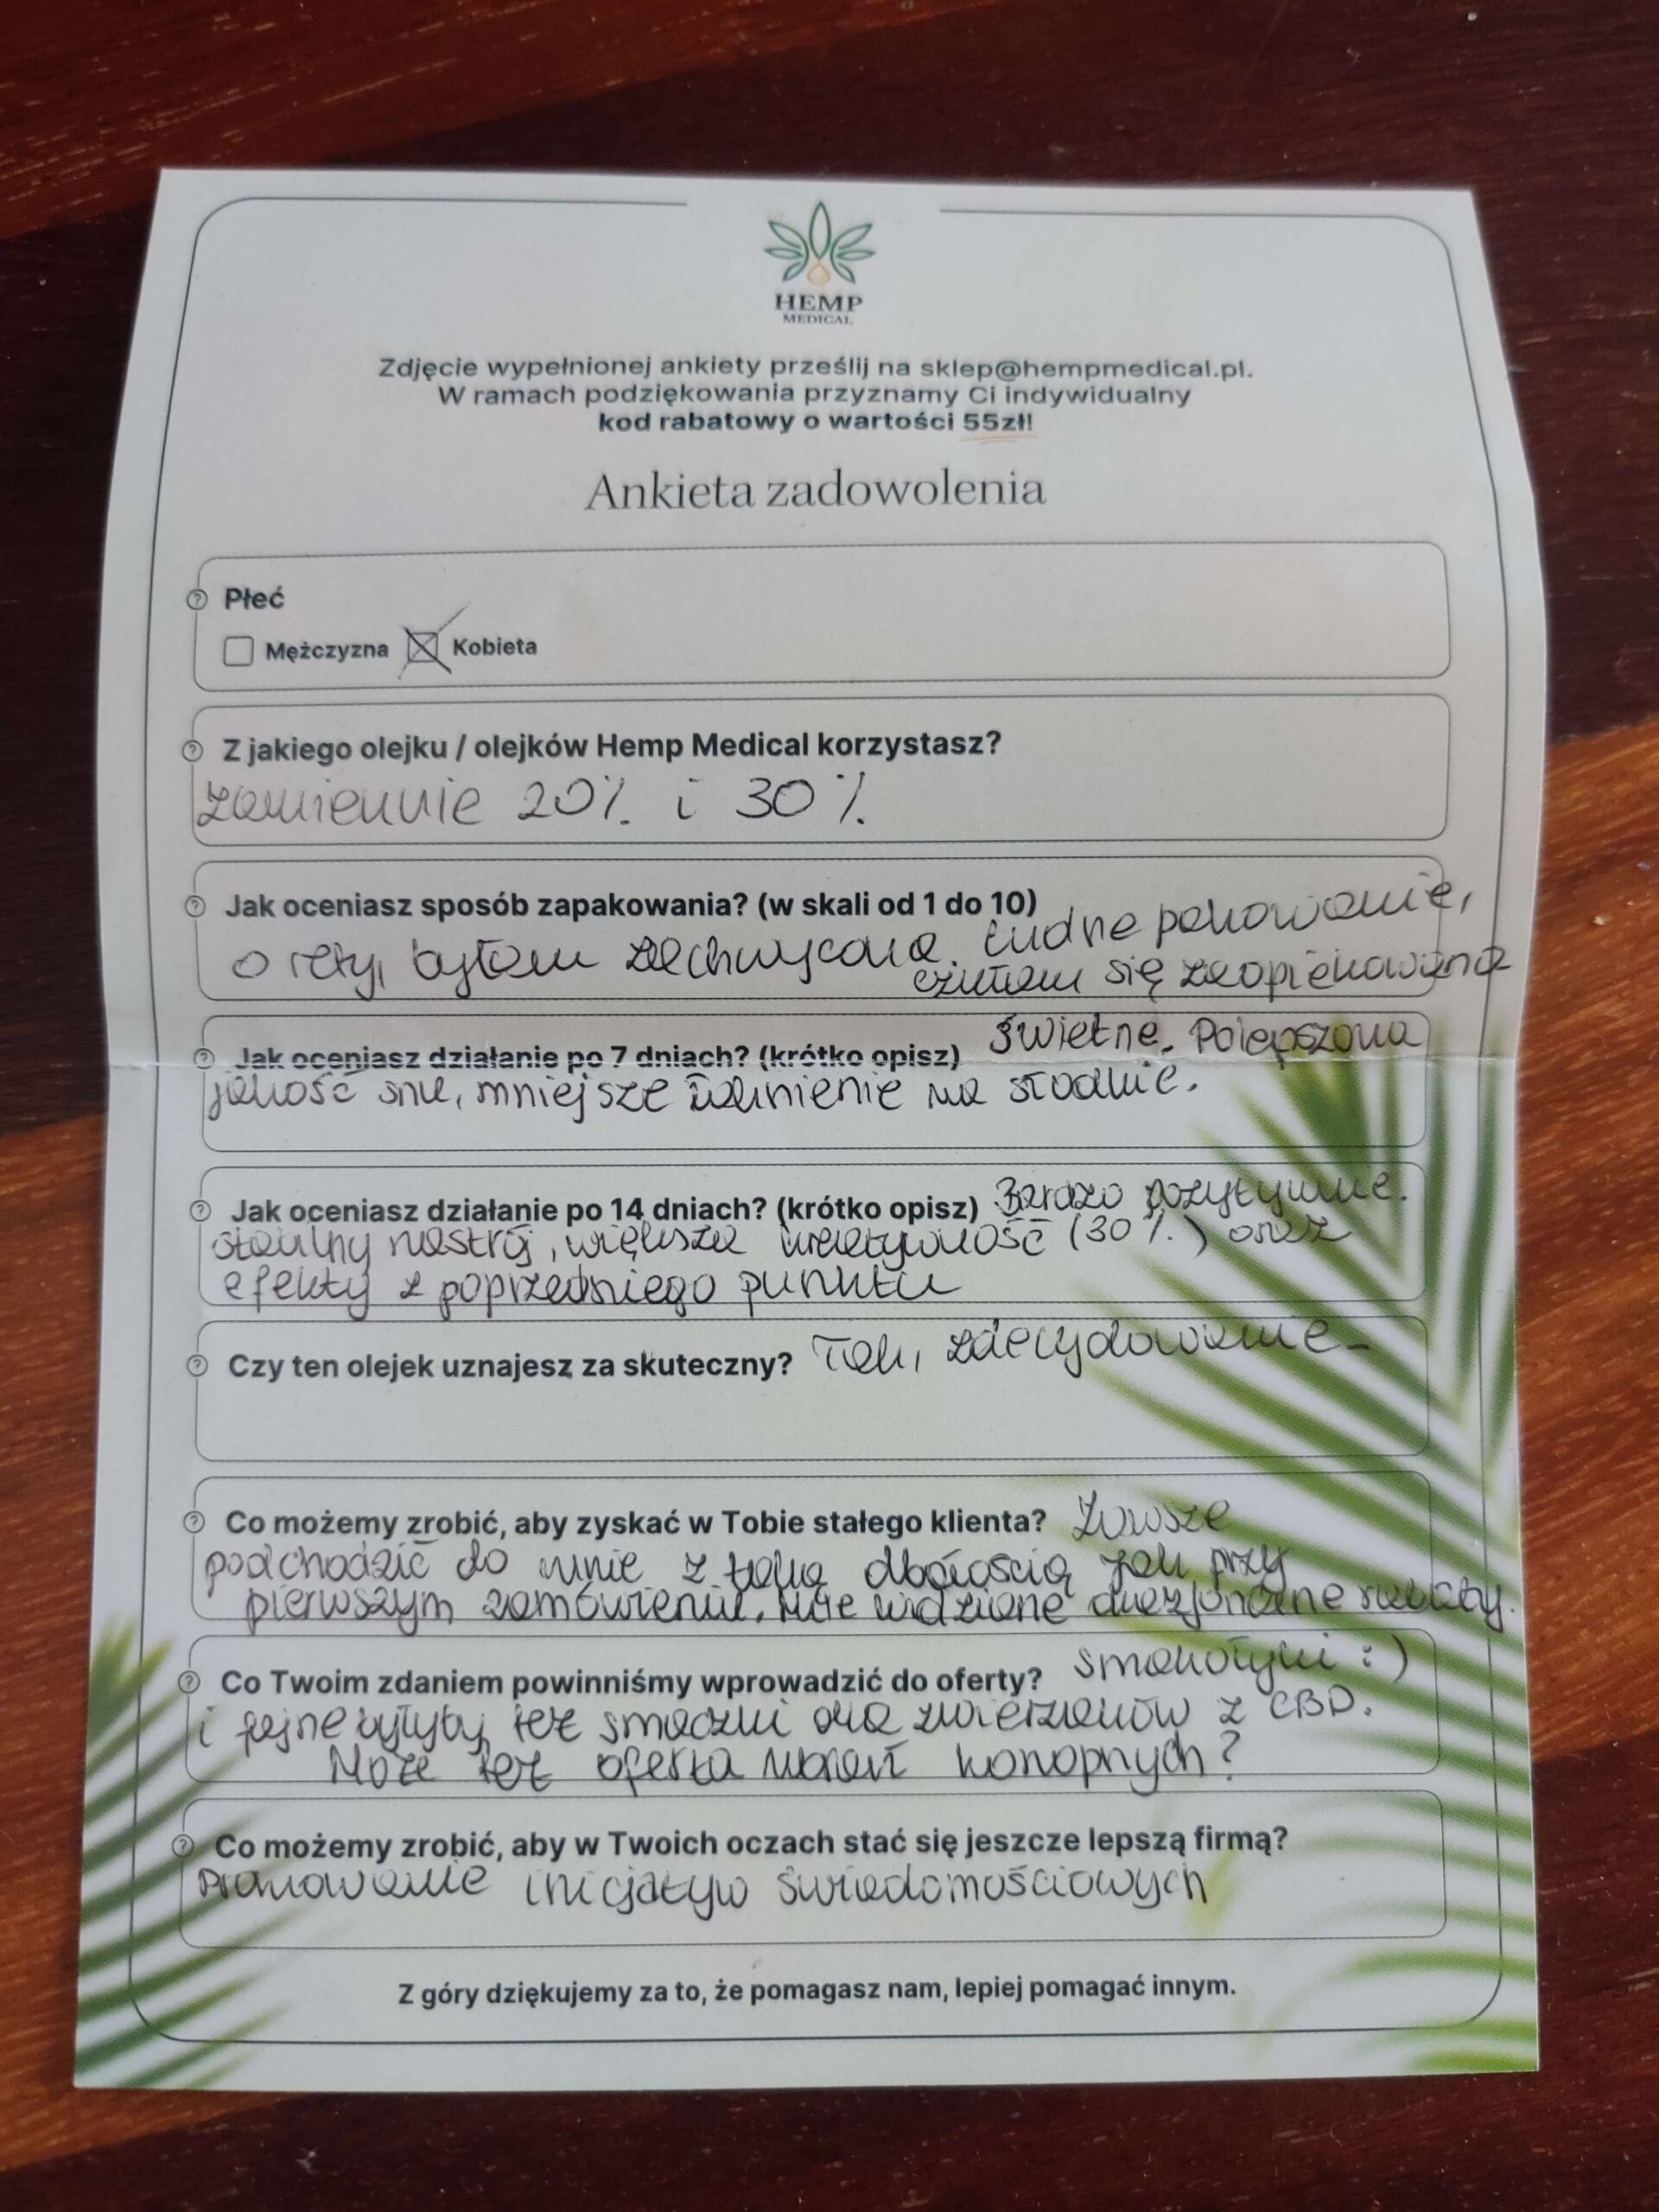 HEMP
MEDICAL
Zdjęcie wypełnionej ankiety prześlij na sklep@hempmedical.pl.
W ramach podziękowania przyznamy Ci indywidualny
kod rabatowy o wartości 55zł!
Ankieta zadowolenia
Płeć
Mężczyzna Kobieta
Z jakiego olejku / olejków Hemp Medical korzystasz?
zamiennie 20% i 30%
Jak oceniasz sposób zapakowania? (w skali od 1 do 10)
o rety, byłam zachwycona. cudne pakowanie,
czułam się zaopiekowana
Jak oceniasz działanie po 7 dniach? (krótko opisz) świetne. Polepszona
jakość snu, mniejsze łaknienie na słodkie.
Jak oceniasz działanie po 14 dniach? (krótko opisz) Bardzo pozytywnie.
stabilny nastrój, większa kreatywność (30%) oraz
efekty z poprzedniego punktu
Czy ten olejek uznajesz za skuteczny? Tak, zdecydowanie
Co możemy zrobić, aby zyskać w Tobie stałego klienta? Zawsze
podchodzić do mnie z taką dbałością jak przy
pierwszym zamówieniu. Mile widziane rabaty.
Co Twoim zdaniem powinniśmy wprowadzić do oferty? smakołyki :)
i fajne byłyby też smaczki dla zwierzaków z CBD.
Może też oferta ubrań konopnych?
Co możemy zrobić, aby w Twoich oczach stać się jeszcze lepszą firmą?
inicjatyw świadomościowych
Z góry dziękujemy za to, że pomagasz nam, lepiej pomagać innym.